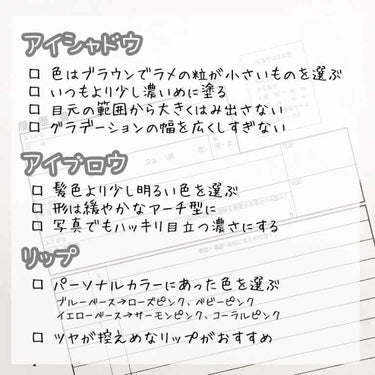 アイシャドウ
□ 色はブラウンでラメの粒が小さいものを選ぶ
□ いつもより少し濃いめに塗る
□ 目元の範囲から大きくはみ出さない
□ グラデーションの幅を広くしすぎない
アイブロウ
□ 髪色より少し明るい色を選ぶ
□ 形は緩やかなアーチ型に
□ 写真でもハッキリ目立つ濃さにする
リップ
□ パーソナルカラーにあった色を選ぶ
ブルーベース→ローズピンク、ベビーピンク
イエローベース→サーモンピンク、コーラルピンク
□ ツヤが控えめなリップがおすすめ